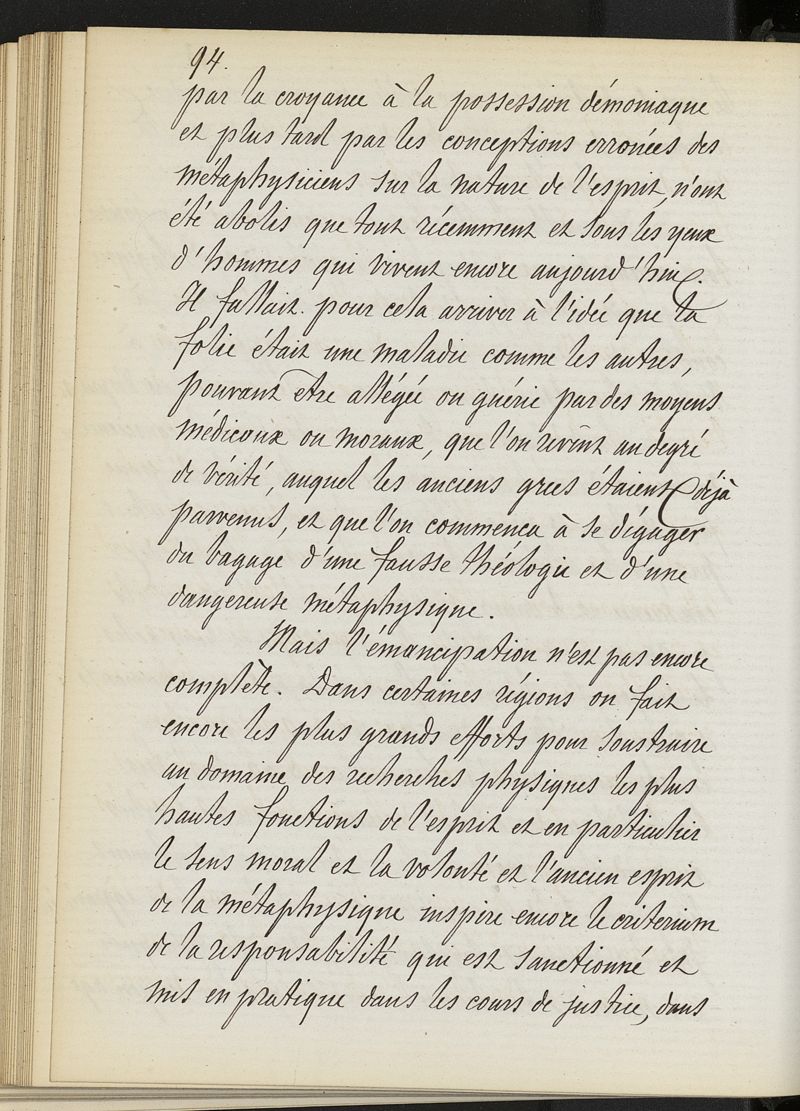 94.
par la croyance à la possession démoniaque
et plus tard par les conceptions erronées des
métaphysiciens sur la nature de l'esprit, n'ont
été abolis que tout récemment et sous les yeux
d'hommes qui vivent encore aujourd'hui.
Il fallait pour cela arriver à l'idée que la
folie était une maladie comme les autres,
pouvant être allégée ou guérie par des moyens
médicaux ou moraux, que l'on revînt au degré
de vérité, auquel les anciens grecs étaient déjà
parvenus, et que l'on commenca à se dégager
du bagage d'une fausse théologie et d'une
dangereuse métaphysique.
Mais l'émancipation n'est pas encore
complète. Dans certaines régions on fait
encore les plus grands efforts pour soustraire
au domaine des recherches physiques les plus
hautes fonctions de l'esprit et en particulier
le sens moral et la volonté et l'ancien esprit
de la métaphysique inspire encore le criterium
de la responsabilité qui est sanctionné et
mis en pratique dans les cours de justice, dans